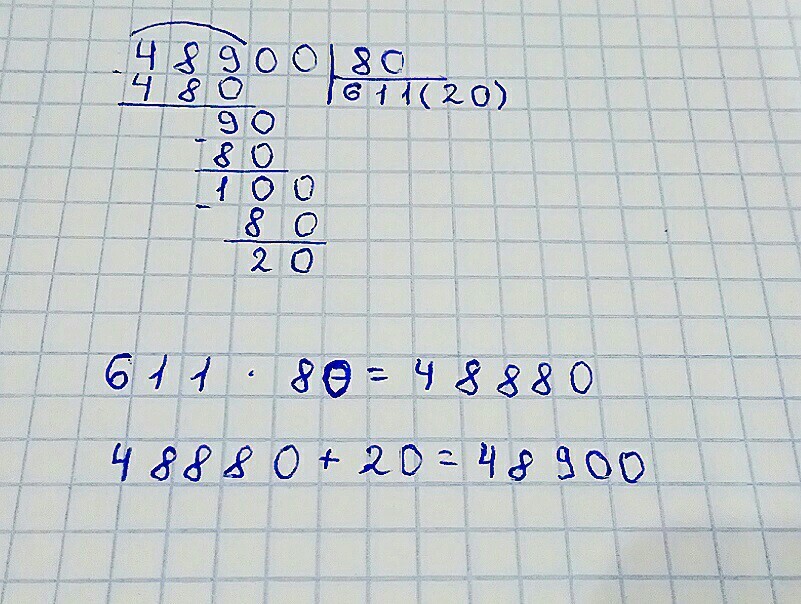 48900 80
- 480 611(20)
90
- 80
100
- 80
20
611 · 80 = 48880
48880 + 20 = 48900